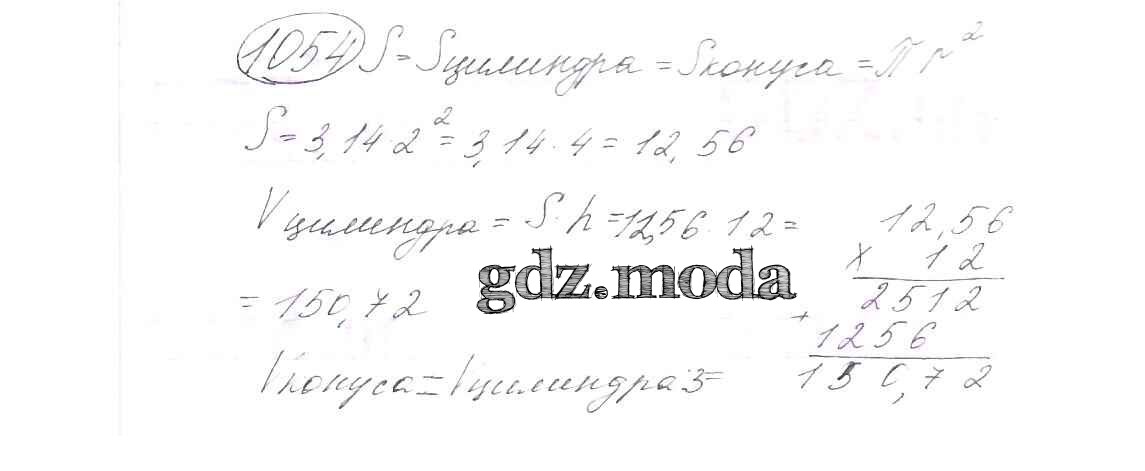 1054 S = Sцилиндра = Sконуса = πr²
S = 3,14·2² = 3,14·4 = 12,56
Vцилиндра = S·h = 12,56·12 =
= 150,72
12,56
× 12
2512
+
1256
150,72
gdz.moda
Vконуса = Vцилиндра:3 =